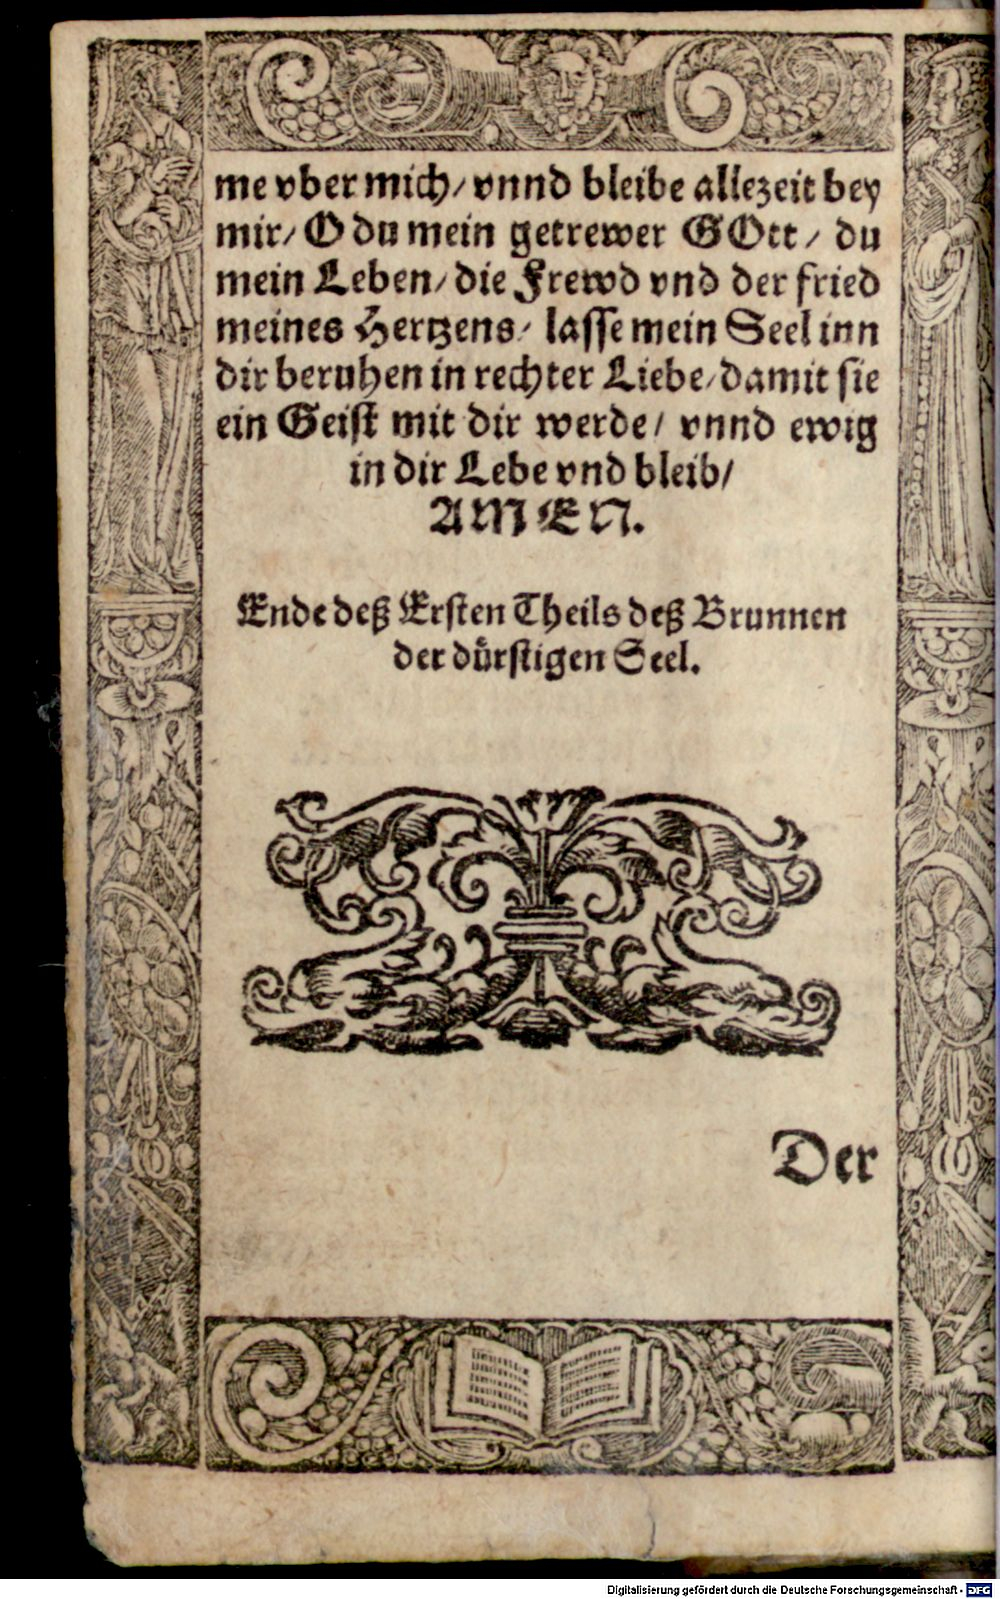 me vber mich/ vnnd bleibe allezeit bey
mir/ O du mein getrewer GOtt/ du
mein Leben/ die Frewd vnd der fried
meines Hertzens/ lasse mein Seel inn
dir beruhen in rechter Liebe/ damit sie
ein Geist mit dir werde/ vnnd ewig
in dir Lebe vnd bleib/
AMEN.
Ende deß Ersten Theils deß Brunnen
der dürstigen Seel.
Der
Digitalisierung gefördert durch die Deutsche Forschungsgemeinschaft - DFG